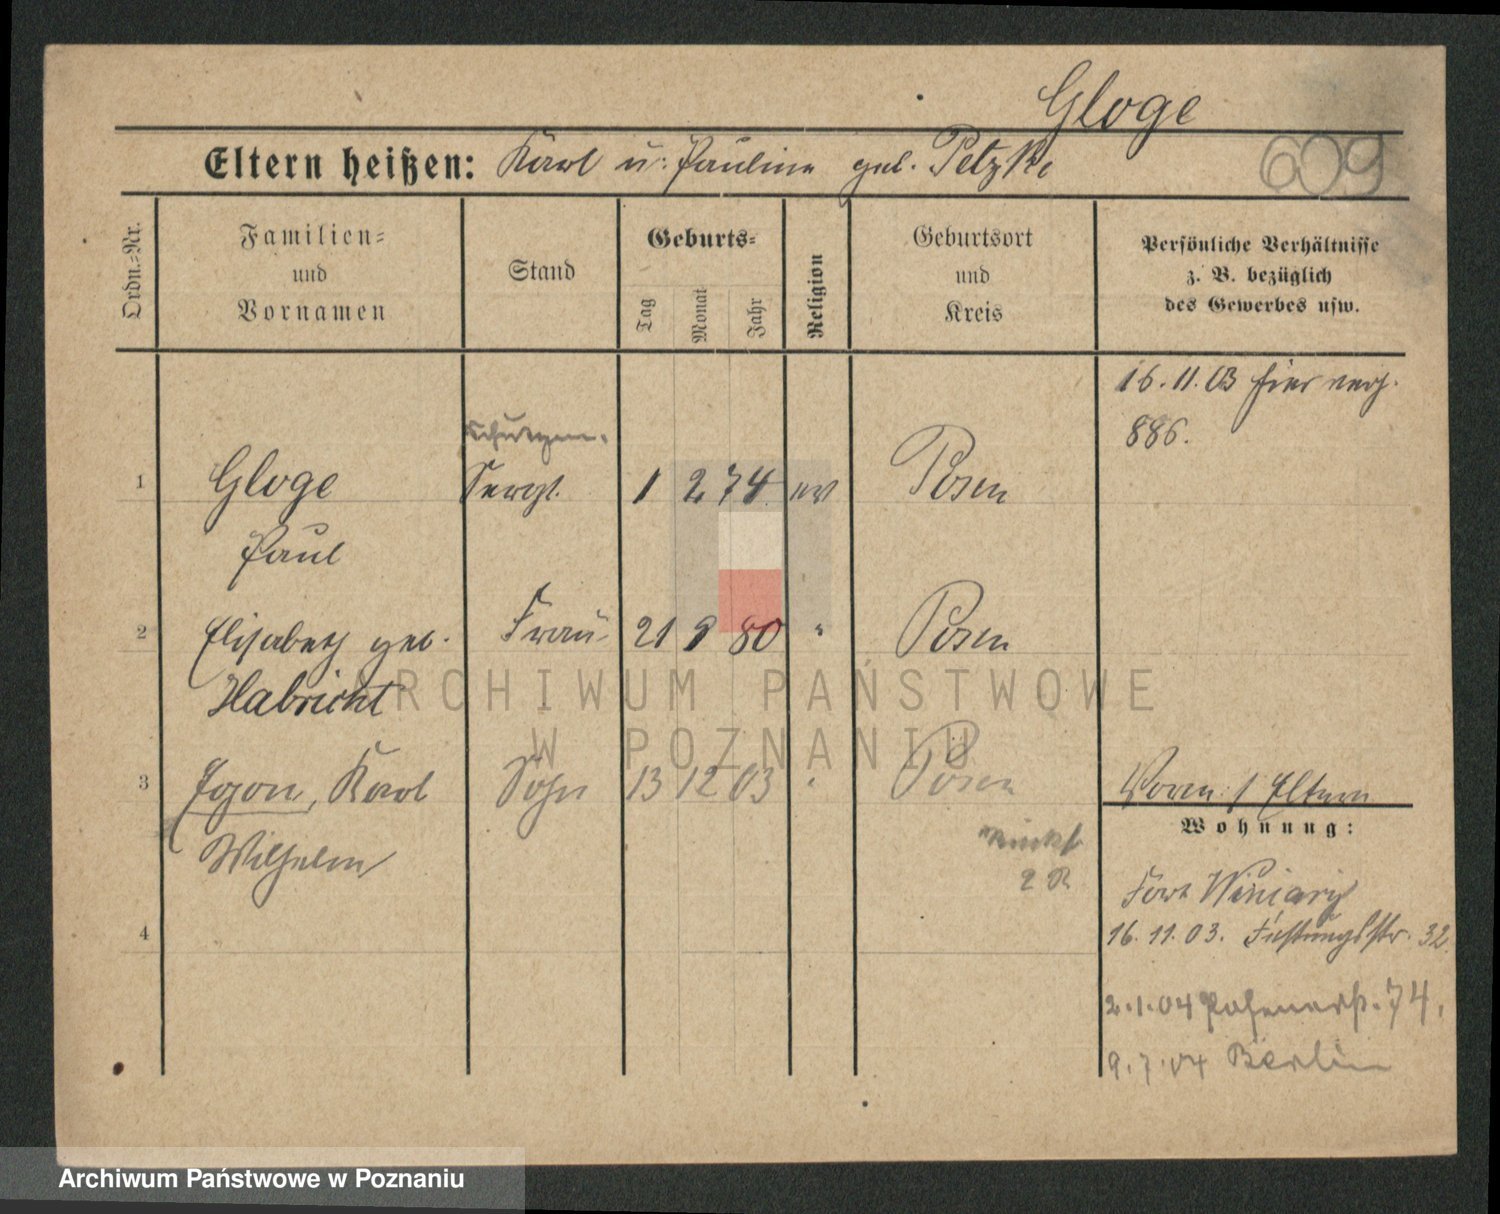 Gloge
609
Eltern heißen: Karl u. Pauline geb. Petzke
Ordn.=Nr.
Familien=
und
Vornamen
Stand
Geburts=
Tag
Monat
Jahr
Religion
Geburtsort
und
Kreis
Persönliche Verhältnisse
z. B. bezüglich
des Gewerbes usw.
16. 11. 03 hier verh.
886.
Schutzm.
1 Gloge Sergt. 1 2 74 ev Posen
Paul
2 Elisabeth geb. Frau 21 9 80 " Posen
Habricht
3 Egon, Karl Sohn 13 12 03 " Posen
Wilhelm
4
Vorm: / Eltern
Wohnung:
2 R
Fort Winiary
16. 11. 03. Festungsstr. 32.
2.1.04 Posenerstr. 74.
9.7.04 Berlin
ARCHIWUM PAŃSTWOWE
W POZNANIU
Archiwum Państwowe w Poznaniu